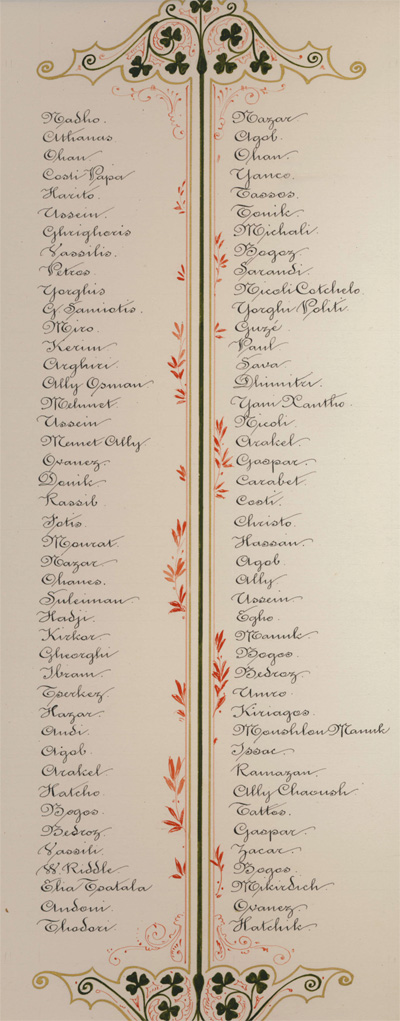 Nadho.
Athanas.
Ohan
Costi Papa
Harito.
Ussein.
Ghrighoris
Vassilis.
Petros.
Yorghis
G. Samiotis.
Miro.
Kerim
Arghiri.
Ally Osman
Mehmet.
Ussein
Memet Ally
Ovanez.
Donik.
Kassib.
Fotis.
Mourat.
Nazar.
Ohanes.
Suleiman.
Hadji.
Kirkor.
Gheorghi
Ibram.
Tserkez.
Hazar.
Andi.
Agob.
Arakel
Hatcho.
Bogos.
Bedroz.
Vassili.
W. Riddle.
Elia Tsatala
Andoni.
Thodori.
Nazar.
Agob.
Ohan.
Yanco.
Tassos.
Tonik.
Michali.
Bogoz.
Sarandi.
Nicoli Cotchelo.
Yorghi Politi.
Guzé.
Paul
Sava
Dhimitri.
Yani Xantho.
Nicoli.
Arakel.
Gaspar.
Carabet.
Costi.
Christo.
Hassan.
Agob.
Ally.
Ussein
Egho.
Manuk.
Bogos.
Bedroz.
Umro.
Kiriagos.
Moushlou Manuk
Issac.
Ramazan.
Ally Chaoush.
Tattos.
Gaspar.
Zacar.
Bogos.
Mikirdich
Ovanez.
Hatchik